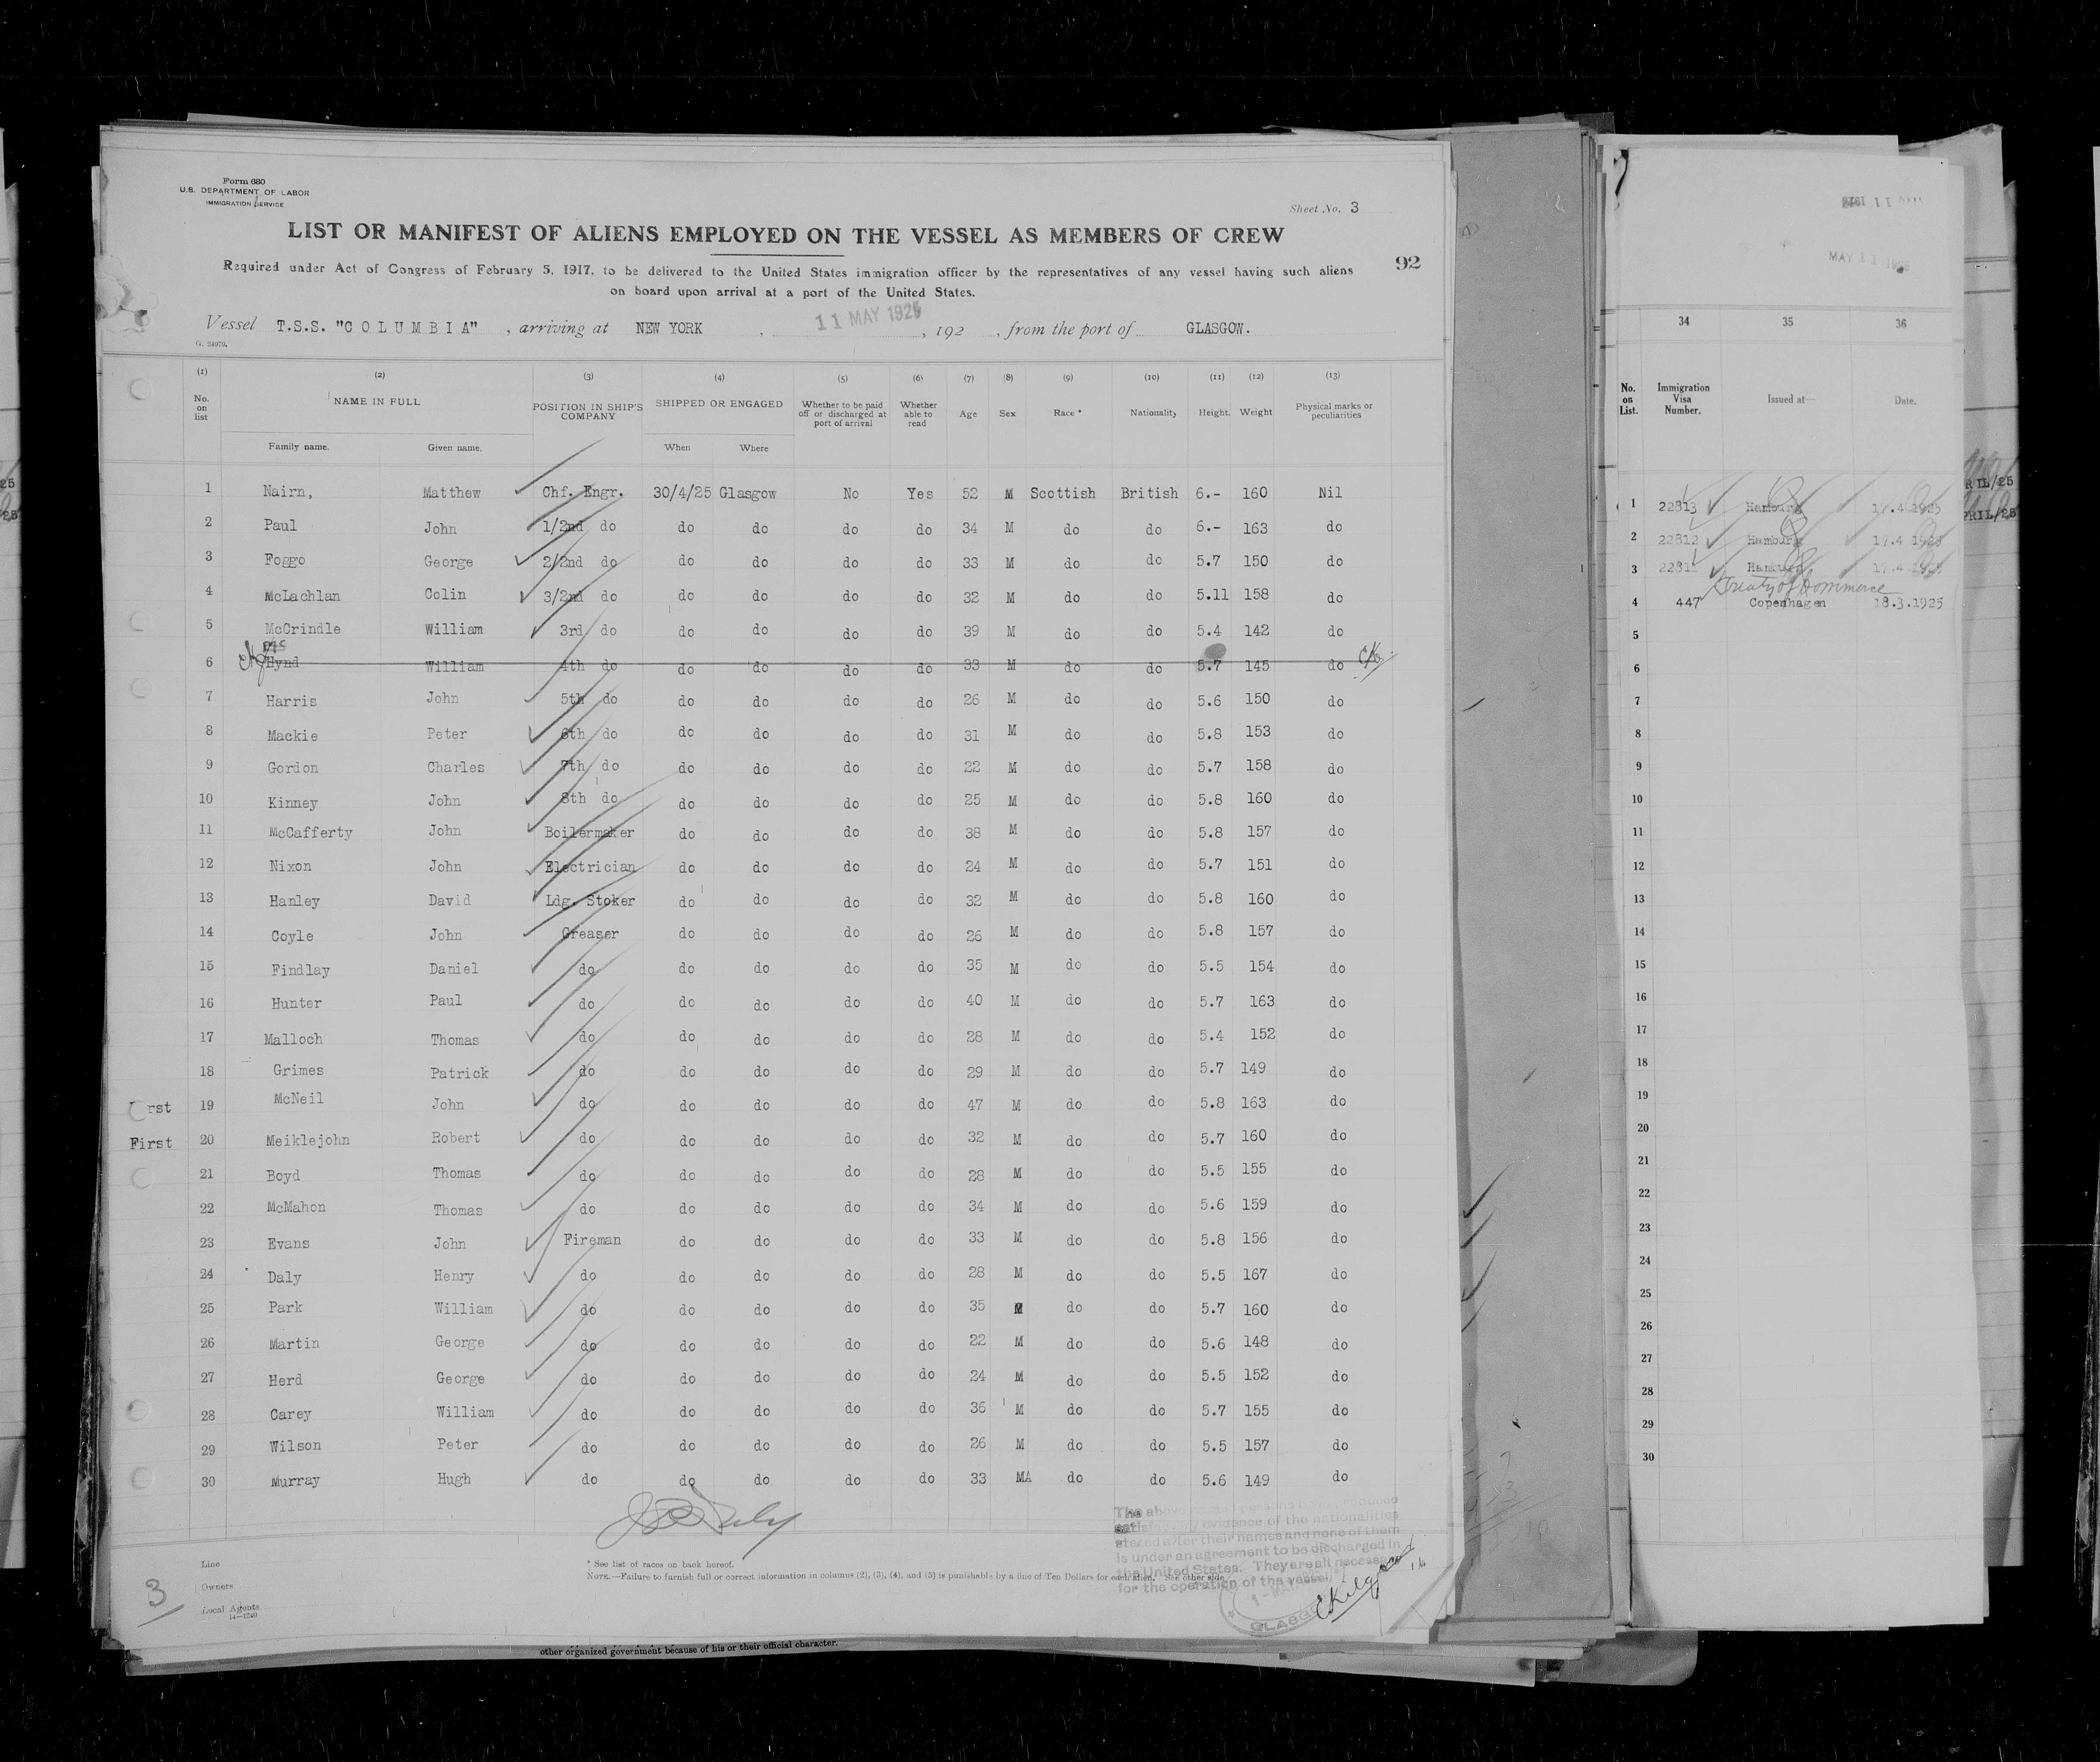 Form 680
U.S. DEPARTMENT OF LABOR
IMMIGRATION SERVICE
Sheet No. 3
LIST OR MANIFEST OF ALIENS EMPLOYED ON THE VESSEL AS MEMBERS OF CREW
92
Required under Act of Congress of February 5, 1917, to be delivered to the United States immigration officer by the representatives of any vessel having such aliens
on board upon arrival at a port of the United States.
Vessel T.S.S. "COLUMBIA", arriving at NEW YORK, 11 MAY 1925, 192 , from the port of GLASGOW.
G. 24970.
(1) (2) (3) (4) (5) (6) (7) (8) (9) (10) (11) (12) (13)
No. on list NAME IN FULL POSITION IN SHIP'S COMPANY SHIPPED OR ENGAGED Whether to be paid off or discharged at port of arrival Whether able to read Age Sex Race * Nationality Height. Weight Physical marks or peculiarities
Family name. Given name. When Where
1 Nairn, Matthew Chf. Engr. 30/4/25 Glasgow No Yes 52 M Scottish British 6.- 160 Nil
2 Paul John 1/2nd do do do do do 34 M do do 6.- 163 do
3 Foggo George 2/2nd do do do do do 33 M do do 5.7 150 do
4 McLachlan Colin 3/2nd do do do do do 32 M do do 5.11 158 do
5 McCrindle William 3rd do do do do do 39 M do do 5.4 142 do
6 Hynd William 4th do do do do do 33 M do do 5.7 145 do
7 Harris John 5th do do do do do 26 M do do 5.6 150 do
8 Mackie Peter 6th do do do do do 31 M do do 5.8 153 do
9 Gordon Charles 7th do do do do do 22 M do do 5.7 158 do
10 Kinney John 8th do do do do do 25 M do do 5.8 160 do
11 McCafferty John Boilermaker do do do do 38 M do do 5.8 157 do
12 Nixon John Electrician do do do do 24 M do do 5.7 151 do
13 Hanley David Ldg. Stoker do do do do 32 M do do 5.8 160 do
14 Coyle John Greaser do do do do 26 M do do 5.8 157 do
15 Findlay Daniel do do do do do 35 M do do 5.5 154 do
16 Hunter Paul do do do do do 40 M do do 5.7 163 do
17 Malloch Thomas do do do do do 28 M do do 5.4 152 do
18 Grimes Patrick do do do do do 29 M do do 5.7 149 do
rst 19 McNeil John do do do do do 47 M do do 5.8 163 do
First 20 Meiklejohn Robert do do do do do 32 M do do 5.7 160 do
21 Boyd Thomas do do do do do 28 M do do 5.5 155 do
22 McMahon Thomas do do do do do 34 M do do 5.6 159 do
23 Evans John Fireman do do do do 33 M do do 5.8 156 do
24 Daly Henry do do do do do 28 M do do 5.5 167 do
25 Park William do do do do do 35 M do do 5.7 160 do
26 Martin George do do do do do 22 M do do 5.6 148 do
27 Herd George do do do do do 24 M do do 5.5 152 do
28 Carey William do do do do do 36 M do do 5.7 155 do
29 Wilson Peter do do do do do 26 M do do 5.5 157 do
30 Murray Hugh do do do do do 33 MA do do 5.6 149 do
The above persons
evidence of the nationalities
stated after their names and none of them
is under an agreement to be discharged in
the United States. They are all necessary
for the operation of the vessel
GLASGOW
Line
Owners
Local Agents
14—1240
3
* See list of races on back hereof.
NOTE.—Failure to furnish full or correct information in columns (2), (3), (4), and (5) is punishable by a fine of Ten Dollars for each alien. See other side.
other organized government because of his or their official character.
MAY 11 1925
34 35 36
No. on List. Immigration Visa Number. Issued at— Date.
1 22813 Hamburg 17.4.1925
2 22812 Hamburg 17.4 1925
3 Hamburg 17.4.1925
Treaty of Commerce
4 447 Copenhagen 18.3.1925
5
6
7
8
9
10
11
12
13
14
15
16
17
18
19
20
21
22
23
24
25
26
27
28
29
30
RIL/25
PRIL/25
25
25